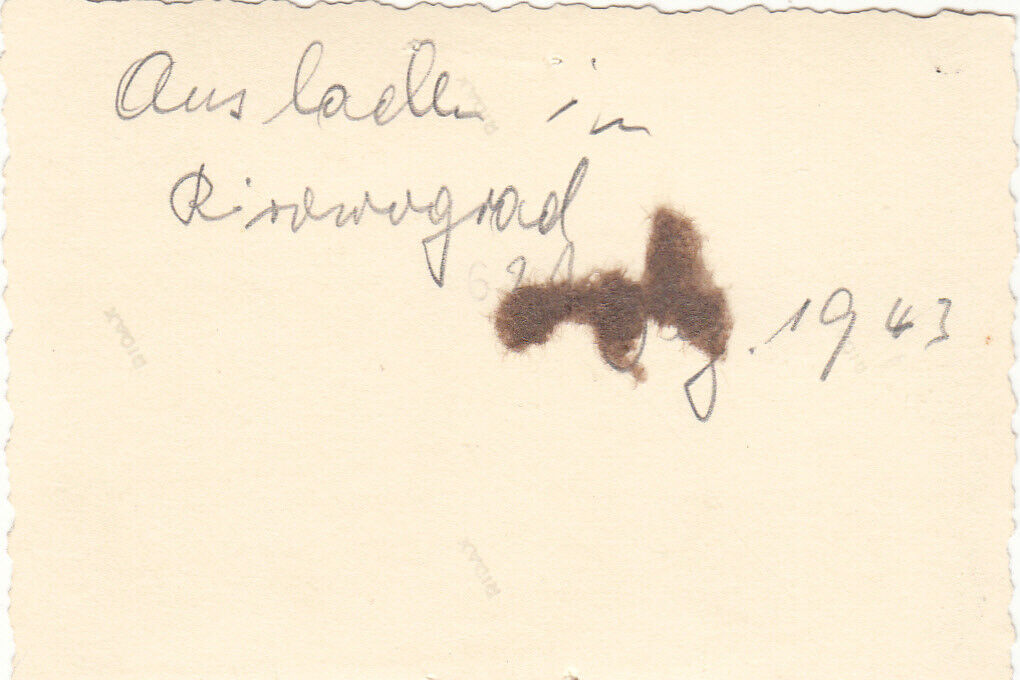 Ausladen in
Kirowograd
. 1943
RIDAX
RIDAX